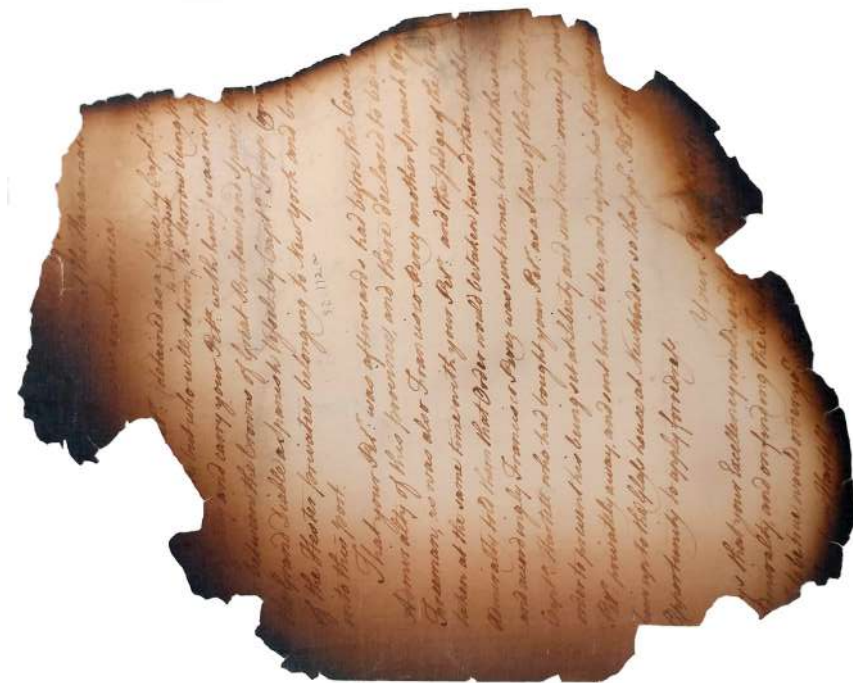 in America
detained as a slave to Capt.
but who will return to Morrow
and carry your Pet.r with him) was in the
between the Crowns of Great Britain and Spain
Grand Diable a Spanish Vessel by Capt.n
of the Hester privateer belonging to New York and
into this port
52.112a
That your Pet.r was afterwards had before the Court
Admiralty of this province and there declared to be a
Freeman, as was also Francisco Perez another Spanish
taken at the same time with your Pet.r and the Judge of the
Admiralty told them that Order would be taken to send them
and accordingly Francisco Perez was sent home; but that
Capt.n that he had bought your Pet.r as a Slave of the Captors
order to prevent his being set at liberty and sent home convey'd your
Pet.r privately away and sent him to sea, and upon his
to the Block house at so that yo.r Pet.r
Opportunity to apply for redress
Your Pet.r
that your Excellency
Admiralty and on finding the